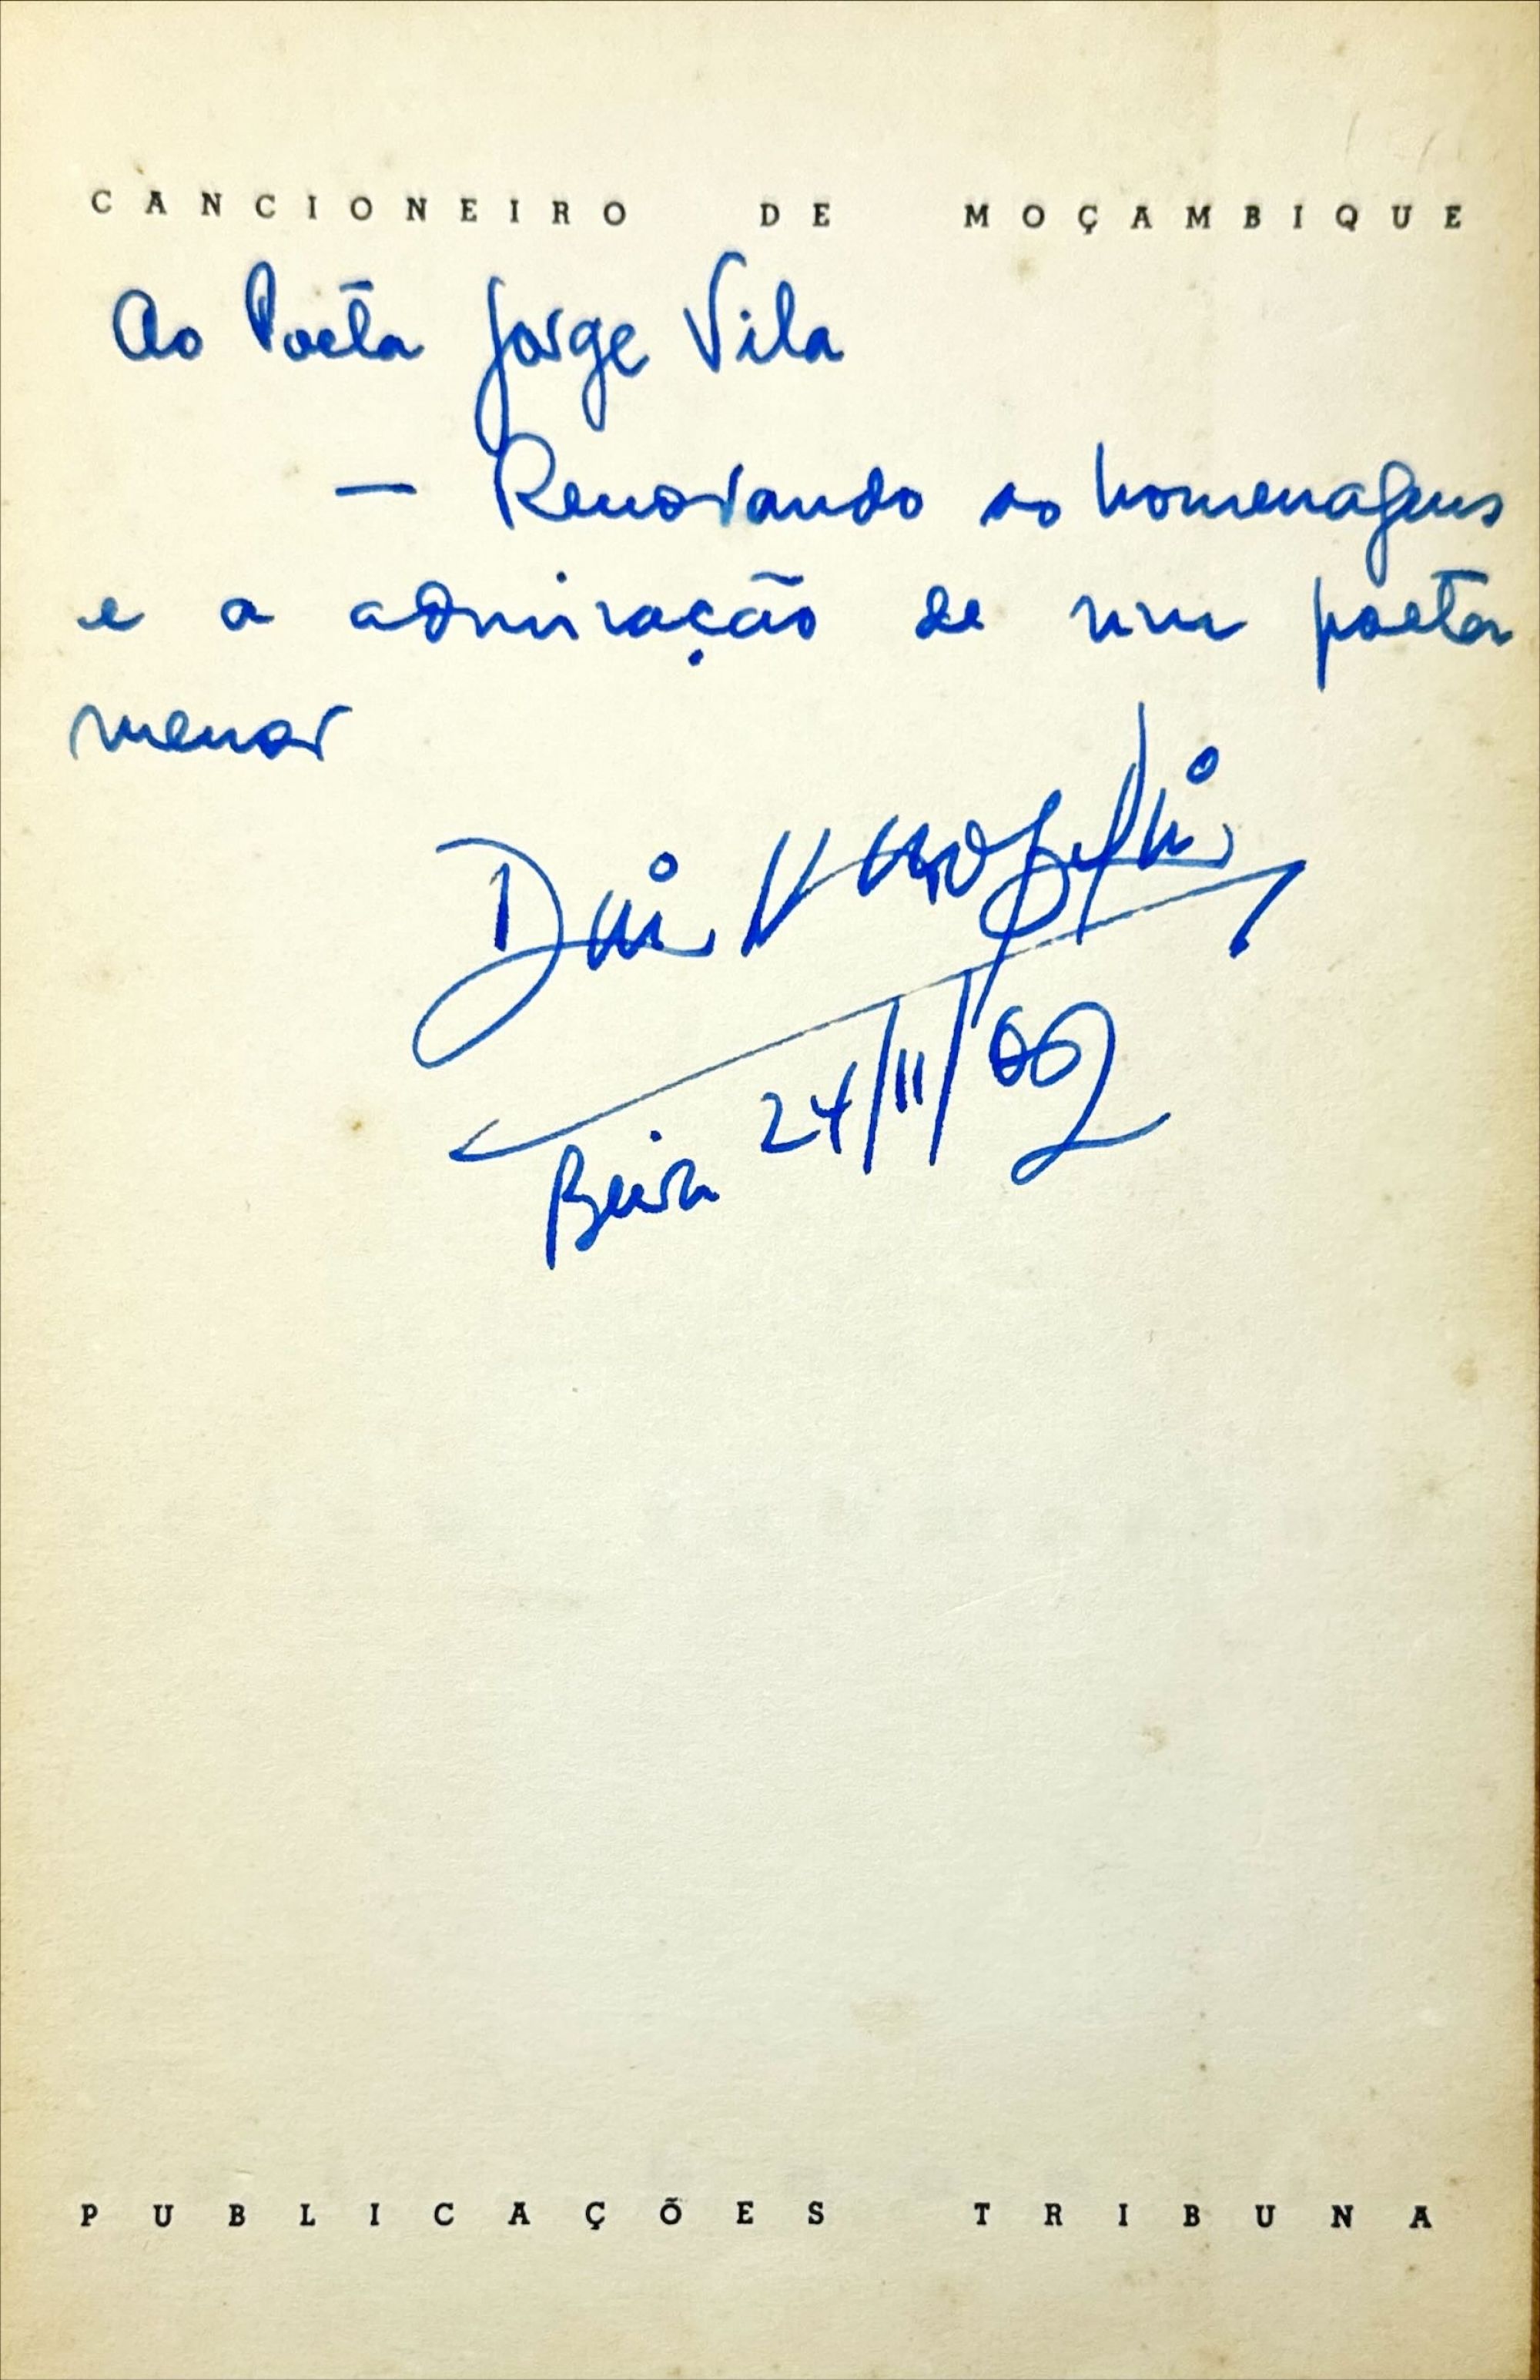 CANCIONEIRO DE MOÇAMBIQUE
Ao Poeta Jorge Vila
— Renovando as homenagens
e a admiração de um poeta
menor
Beira 24/11/
PUBLICAÇÕES TRIBUNA